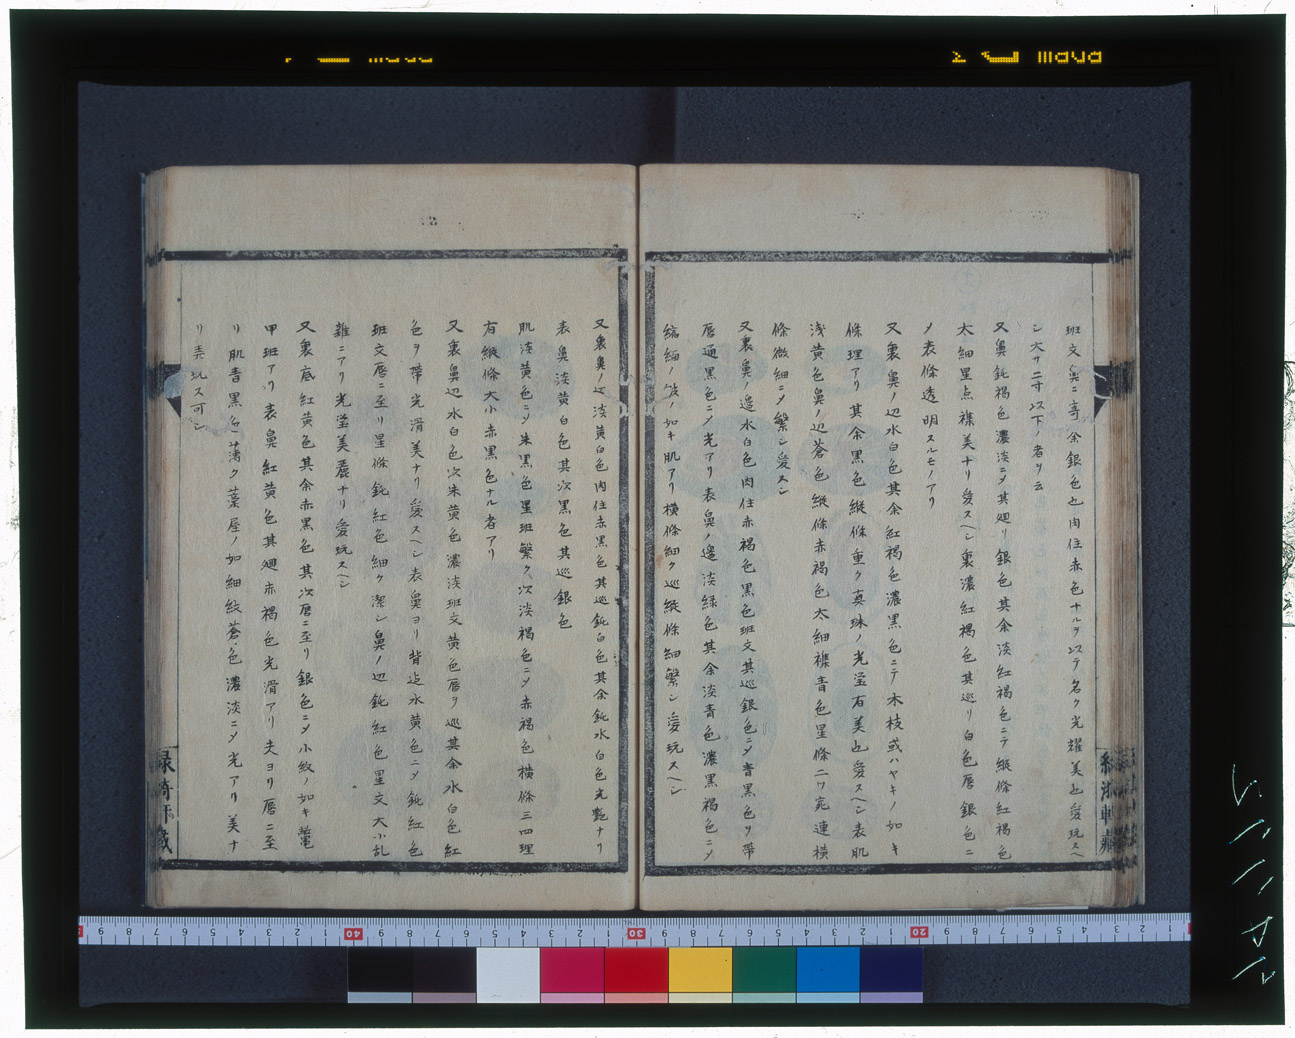 班文鼻ニ寄余銀色也肉住赤色ナルヲ以テ名ク光耀美也愛玩スヘ
シ大サ二寸以下ノ者ヲ云
又鼻鈍褐色濃淡ニメ其廻リ銀色其余淡紅褐色ニテ縦條紅褐色
太細星点襍美ナリ愛スヘシ裏濃紅褐色其巡リ白色唇銀色ニ
メ表條透明スルモノアリ
又裏鼻ノ辺水白色其余紅褐色濃黒色ニテ木枝或ハヤキノ如キ
條理アリ其余黒色縦條重ク真珠ノ光瑩石美也愛スヘシ表肌
浅黄色鼻ノ辺蒼色縦條赤褐色太細襍青色星條二ワ連横
條微細ニメ繁シ愛スシ
又裏鼻ノ邉水白色肉住赤褐色黒色班文其巡銀色ニメ青黒色ヲ帶
唇通黒色ニメ光アリ表鼻ノ邉淡緑色其余淡青色濃黒褐色ニメ
縮緬ノ皺ノ如キ肌アリ横條細ク巡縦條細繁シ愛玩スヘシ
又裏鼻ノ辺淡黄白色肉住赤黒色其巡鈍白色其余鈍水白色光艶ナリ
表鼻淡黄白色其次黒色其巡銀色
肌淡黄色ニメ朱黒色星班繁ク次淡褐色ニメ赤褐色横條三四理
有縦條大小赤黒色ナル者アリ
又裏鼻辺水白色次朱黄色濃淡班文黄色唇ヲ巡其余水白色紅
色ヲ帶光滑美ナリ愛スヘシ表鼻ヨリ背迠水黄色ニメ鈍紅色
班文唇ニ至リ星條鈍紅色細ク潔シ鼻ノ辺鈍紅色星文大小乱
雜ニアリ光瑩美麗ナリ愛玩スヘシ
又裏底紅黄色其余赤黒色其次唇ニ至リ銀色ニメ小紋ノ如キ鼈
甲班アリ表鼻紅黄色其廻赤褐色光滑アリ夫ヨリ唇ニ至
リ肌青黒色薄ク藁屋ノ如細紋蒼色濃淡ニメ光アリ美ナ
リ弄玩ス可シ